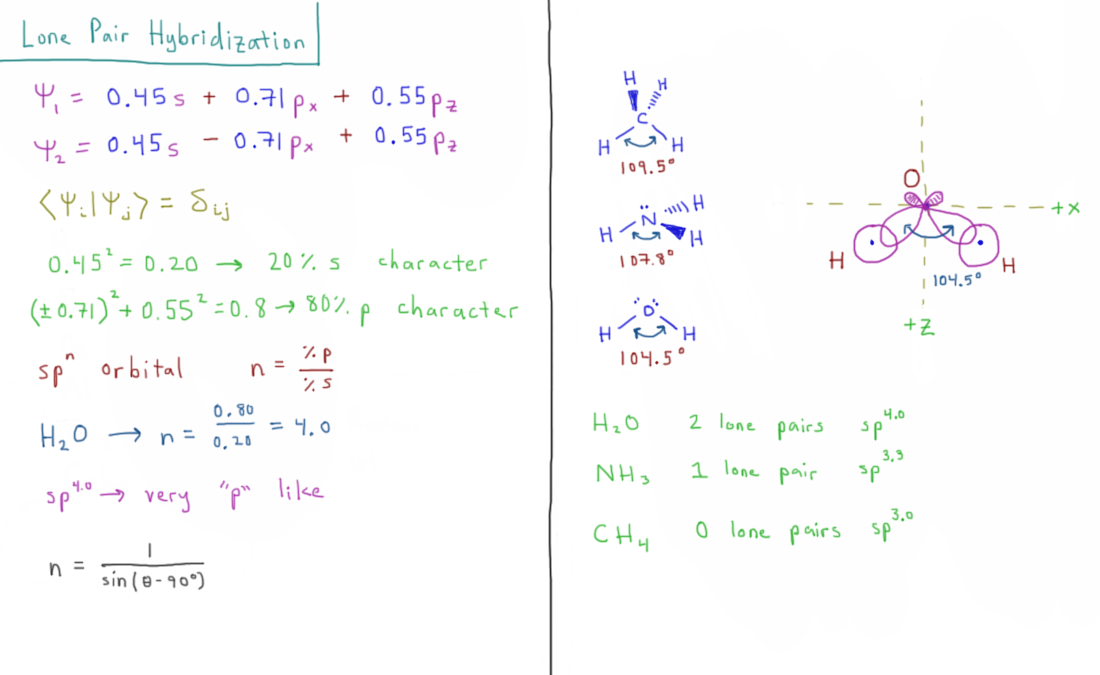 Lone Pair Hybridization
Ψ₁ = 0.45s + 0.71pₓ + 0.55p_z
Ψ₂ = 0.45s − 0.71pₓ + 0.55p_z
⟨Ψᵢ|Ψⱼ⟩ = δᵢⱼ
0.45² = 0.20 → 20% s character
(±0.71)² + 0.55² = 0.8 → 80% p character
spⁿ orbital n = %p / %s
H₂O → n = 0.80 / 0.20 = 4.0
sp⁴·⁰ → very "p" like
n = 1 / sin(θ-90°)
H
H
C
H H
109.5°
N H
H H
107.8°
O
H H
104.5°
O
+x
H H
104.5°
+z
H₂O 2 lone pairs sp⁴·⁰
NH₃ 1 lone pair sp³·³
CH₄ 0 lone pairs sp³·⁰